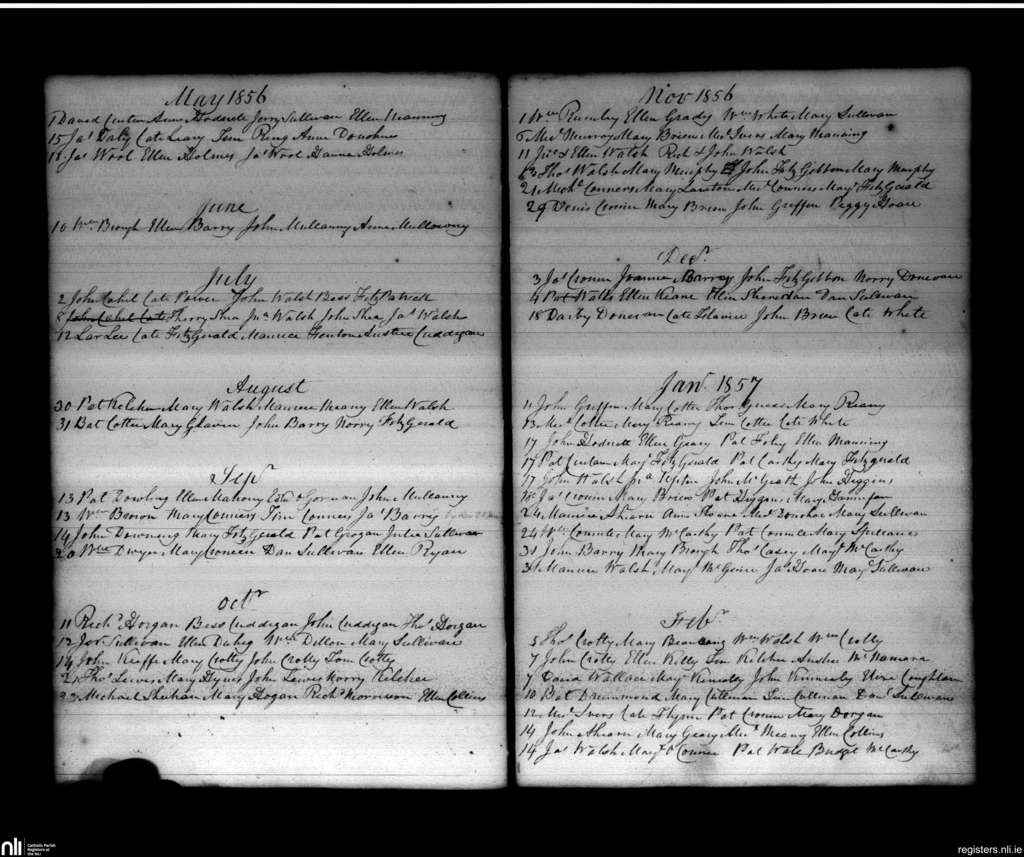 May 1856
1 David Anne Hodnett Jerry Sullivan Ellen Manning
15 Jas Daly Cate Leary Tim Ring Anne Donohue
18 Jas Wool Ellen Holmes Jas Wool Hanna Holmes
June
10 Wm Brough Ellen Barry John Mulcanny Anne Mullowny
July
2 John Cahil Cate Power John Walsh Bess FitzPatrick
8 John Cahil Cate Sherry Shea Jno Walsh John Shea Jas Walsh
12 Lar Lee Cate FitzGerald Maurice Austin Cuddigan
August
30 Pat Kelcher Mary Walsh Maurice Meany Ellen Walsh
31 Bat Cotter Mary Glavin John Barry Norry FitzGerald
Sepr
13 Pat Dowling Ellen Mahony Edwd Gorman John Mulcanny
13 Wm Mary Connors Tim Connors Jas Barry
14 John Downing Mary FitzGerald Pat Grogan Julia Sullivan
20 Wm Dwyer Mary Dan Sullivan Ellen Ryan
Octr
11 Richd Horgan Bess Cuddigan John Cuddigan Thos Horgan
12 Jer Sullivan Ellen Dahig Wm Dillon Mary Sullivan
14 John Keeffe Mary Crotty John Crotty Tom Crotty
21 Thos Lewis Mary Hynes John Lewis Norry Kelcher
23 Michael Shehan Mary Hogan Richd Morrison Ellen Collins
Nov 1856
1 Wm Ellen Grady Wm White Mary Sullivan
6 Mic Murray Mary Brien Mary Manning
11 Jno & Ellen Walsh Rich & John Walsh
13 Thos Walsh Mary Murphy John FitzGibbon Mary Murphy
21 Michl Connors Mary Mic Connors Mary FitzGerald
29 Denis Cronin Mary Brien John Griffin Peggy Hoare
Decr
3 Jas Cronin Joanna Barry John FitzGibbon Norry Donovan
4 Pat Walsh Ellen Keane Ellen Sheredan Dan Sullivan
18 Darby Donovan Cate John Brien Cate White
Jany 1857
11 John Griffin Mary Cotter Thos Mary Reany
13 Cotter Mary Reany Tim Cotter Cate White
17 John Hodnett Ellen Geary Pat Foley Ellen Manning
17 Pat Mary FitzGerald Pat Carthy Mary Fitzgerald
17 John Walsh John McGrath John Diggins
18 Jas Cronin Mary Brien Pat Diggins Mary
24 Maurice Ahearn Ann Mary Sullivan
24 Wm Mary McCarthy Pat Mary Spillane
31 John Barry Mary Brough Thos Casey Mary McCarthy
31 Maurice Walsh Mary McGuire Jas Hoare Mary Sullivan
Feb
5 Thos Crotty Mary Wm Walsh Wm Crotty
7 John Crotty Ellen Kelly Tom Kelcher Anstee McNamara
7 David Wallace Mary Kennedy John Kennedy Coughlan
10 Bat Drummond Mary Culleman Tim Culleman Danl Sullivan
12 Cate Flynn Pat Cronin Mary Dorgan
14 John Ahearn Mary Geary Meany Ellen Collins
14 Jas Walsh Mary Connor Pat Wale Bridget McCarthy
nli
Catholic Parish
Registers at
the NLI
registers.nli.ie